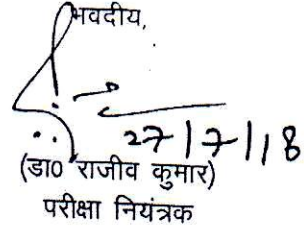 भवदीय,
27/7/18
(डा0 राजीव कुमार)
परीक्षा नियंत्रक